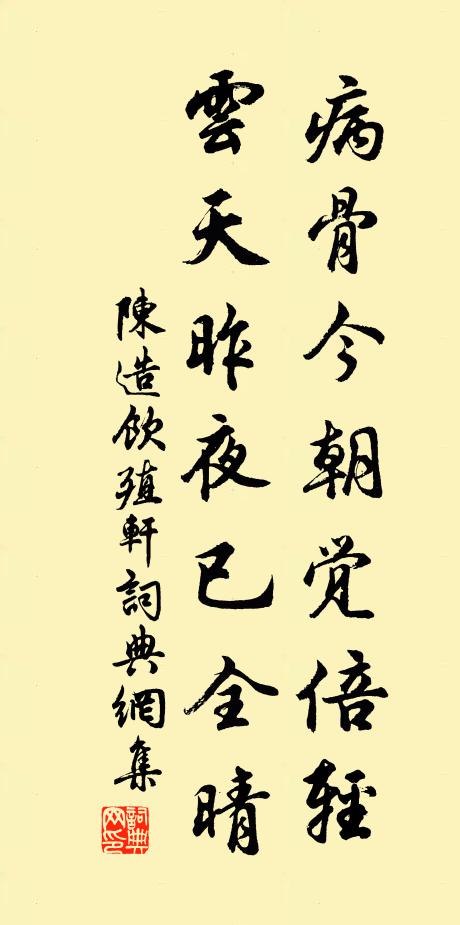 病骨今朝觉倍輕
雲天昨夜已全晴
陳造飲殖軒詞典網集
詞典
网印